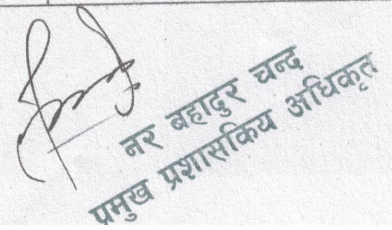 नर बहादुर चन्द
प्रमुख प्रशासकिय अधिकृत